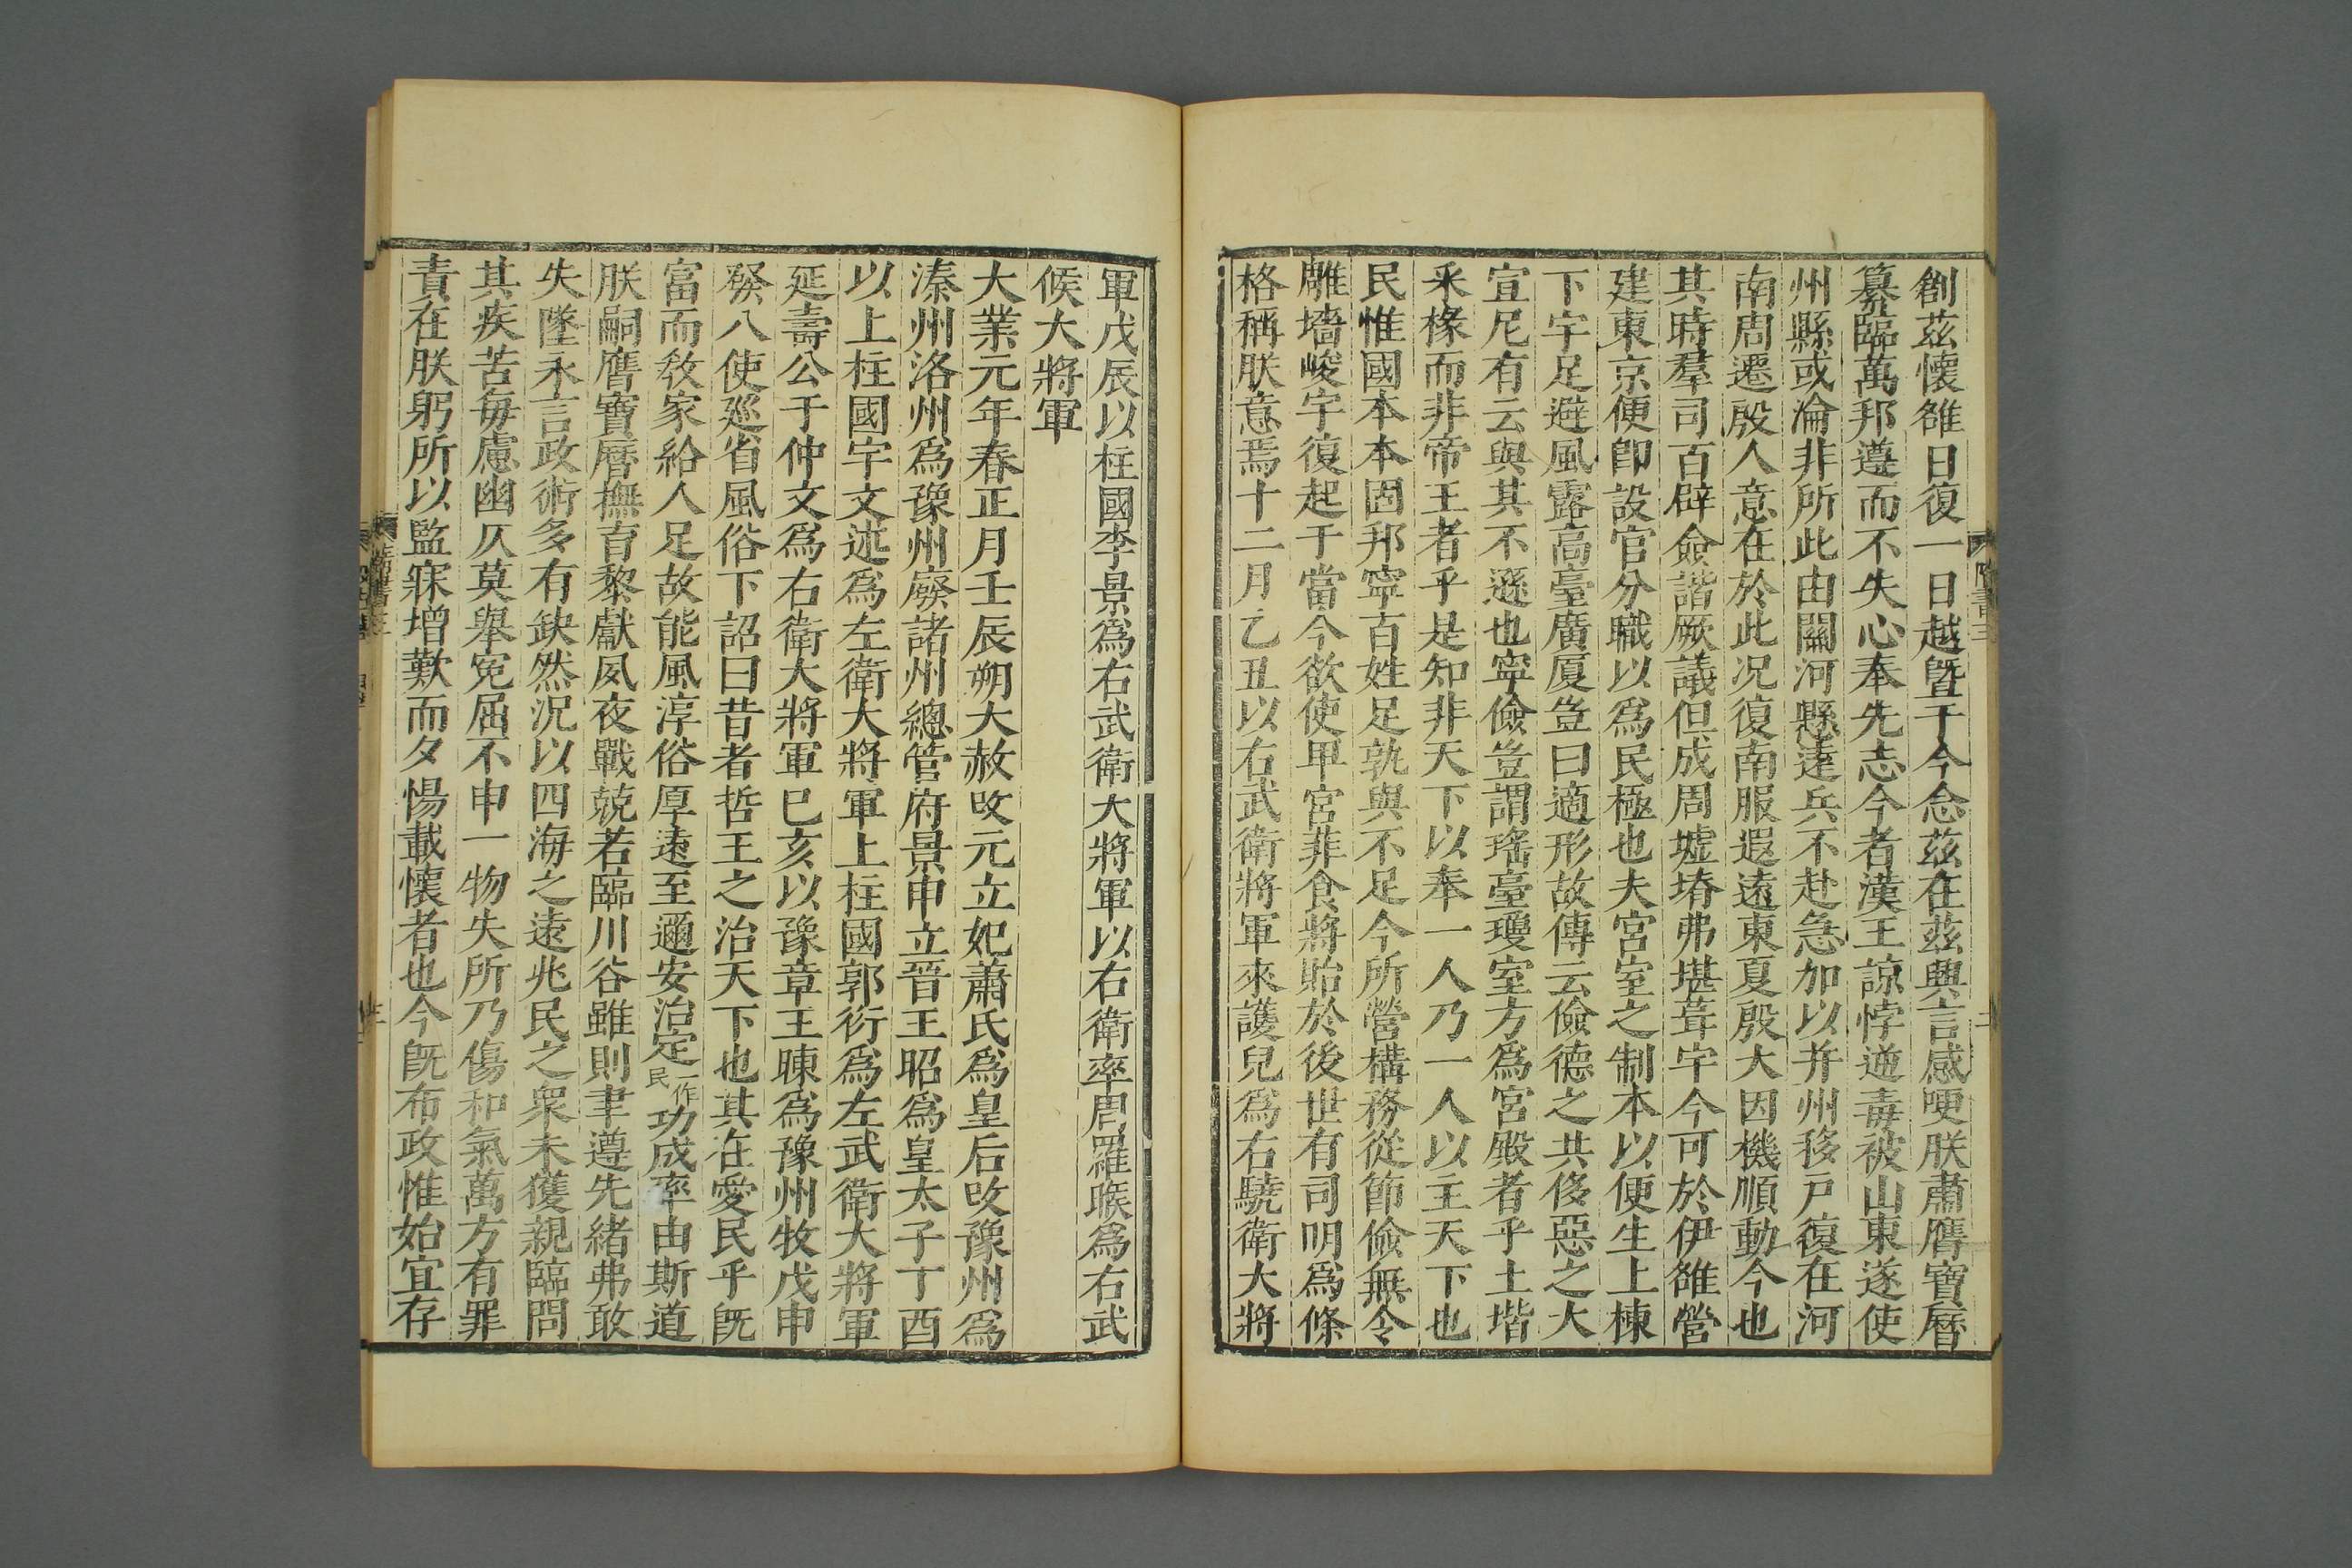 創茲懷雒日復一日越曁于今念茲在茲興言感哽朕肅膺寶曆
纂臨萬邦遵而不失心奉先志今者漢王諒悖逆毒被山東遂使
州縣或淪非所此由關河懸遠兵不赴急加以并州移戸復在河
南周遷殷人意在於此况復南服遐遠東夏殷大因機順動今也
其時羣司百辟僉諧厥議但成周墟塉弗堪葺宇今可於伊雒營
建東京便卽設官分職以爲民極也夫宮室之制本以便生上棟
下宇足避風露高臺廣厦豈曰適形故傳云儉德之共侈惡之大
宣尼有云與其不遜也寧儉豈謂瑤臺瓊室方爲宮殿者乎土堦
采椽而非帝王者乎是知非天下以奉一人乃一人以主天下也
民惟國本本固邦寧百姓足孰與不足今所營構務從節儉無令
雕墻峻宇復起于當今欲使卑宮菲食將貽於後世有司明爲條
格稱朕意焉十二月乙丑以右武衛將軍來護兒爲右驍衛大將
軍戊辰以柱國李景爲右武衛大將軍以右衛率周羅㬋爲右武
候大將軍
大業元年春正月壬辰朔大赦改元立妃蕭氏爲皇后改豫州爲
溱州洛州爲豫州廢諸州總管府景申立晉王昭爲皇太子丁酉
以上柱國宇文述爲左衛大將軍上柱國郭衍爲左武衛大將軍
延壽公于仲文爲右衛大將軍巳亥以豫章王暕爲豫州牧戊申
發八使廵省風俗下詔曰昔者哲王之治天下也其在愛民乎旣
富而敎家給人足故能風淳俗厚遠至邇安治定一作民功成率由斯道
朕嗣膺寶曆撫育黎獻夙夜戰兢若臨川谷雖則聿遵先緒弗敢
失墜永言政術多有缺然况以四海之遠兆民之衆未獲親臨問
其疾苦每慮幽仄莫舉寃屈不申一物失所乃傷和氣萬方有罪
責在朕躬所以寤寐增歎而夕惕載懷者也今旣布政惟始宜存